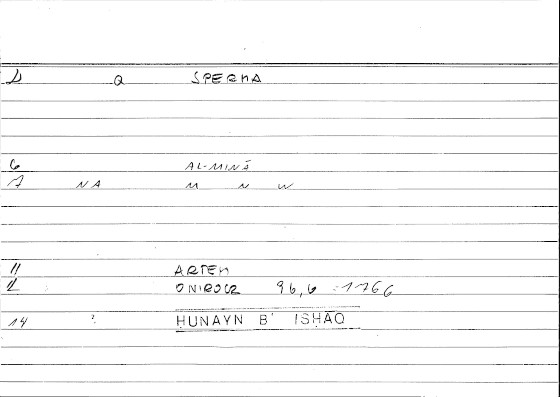 1 Q SPERMA
6 AL-MINĀ
7 NA M N W
11 ARTEM
12 ONIROCR 96,6 1766
14 ? HUNAYN B' ISHĀQ